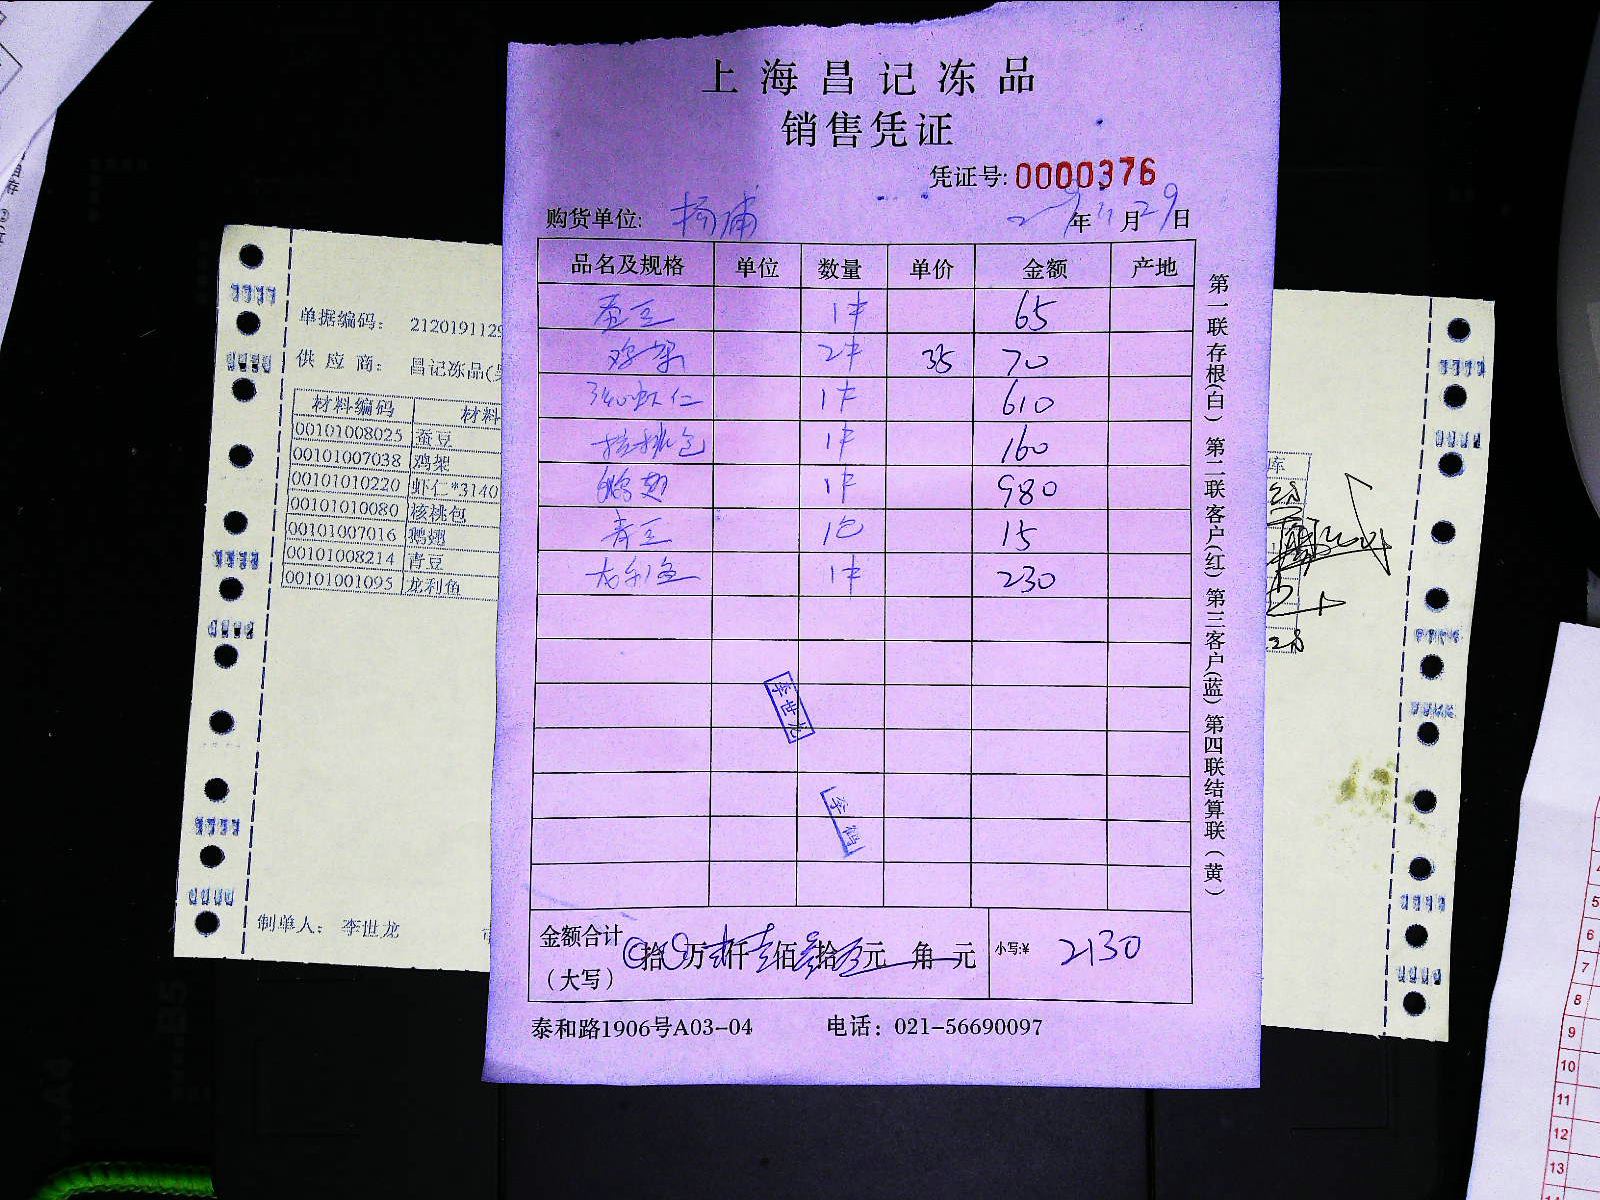 上海昌记冻品
销售凭证
凭证号: 0000376
购货单位: 杨浦 年 11 月 29 日
品名及规格 单位 数量 单价 金额 产地
蚕豆 1件 65
鸡架 2件 35 70
3140虾仁 1件 610
核桃包 1件 160
鹅翅 1件 980
青豆 1包 15
龙利鱼 1件 230
李世龙
金额合计 拾 万 仟 佰 拾 元 角 元 小写:¥ 2130
（大写）
泰和路1906号A03-04 电话：021-56690097
第一联存根(白) 第二联客户(红) 第三客户(蓝) 第四联结算联（黄）
单据编码： 2120191129
供 应 商： 昌记冻品(
材料编码 材料
00101008025 蚕豆
00101007038 鸡架
00101010220 虾仁*3140
00101010080 核桃包
00101007016 鹅翅
00101008214 青豆
00101001095 龙利鱼
制单人： 李世龙
库
5
6
7
8
9
10
11
12
13